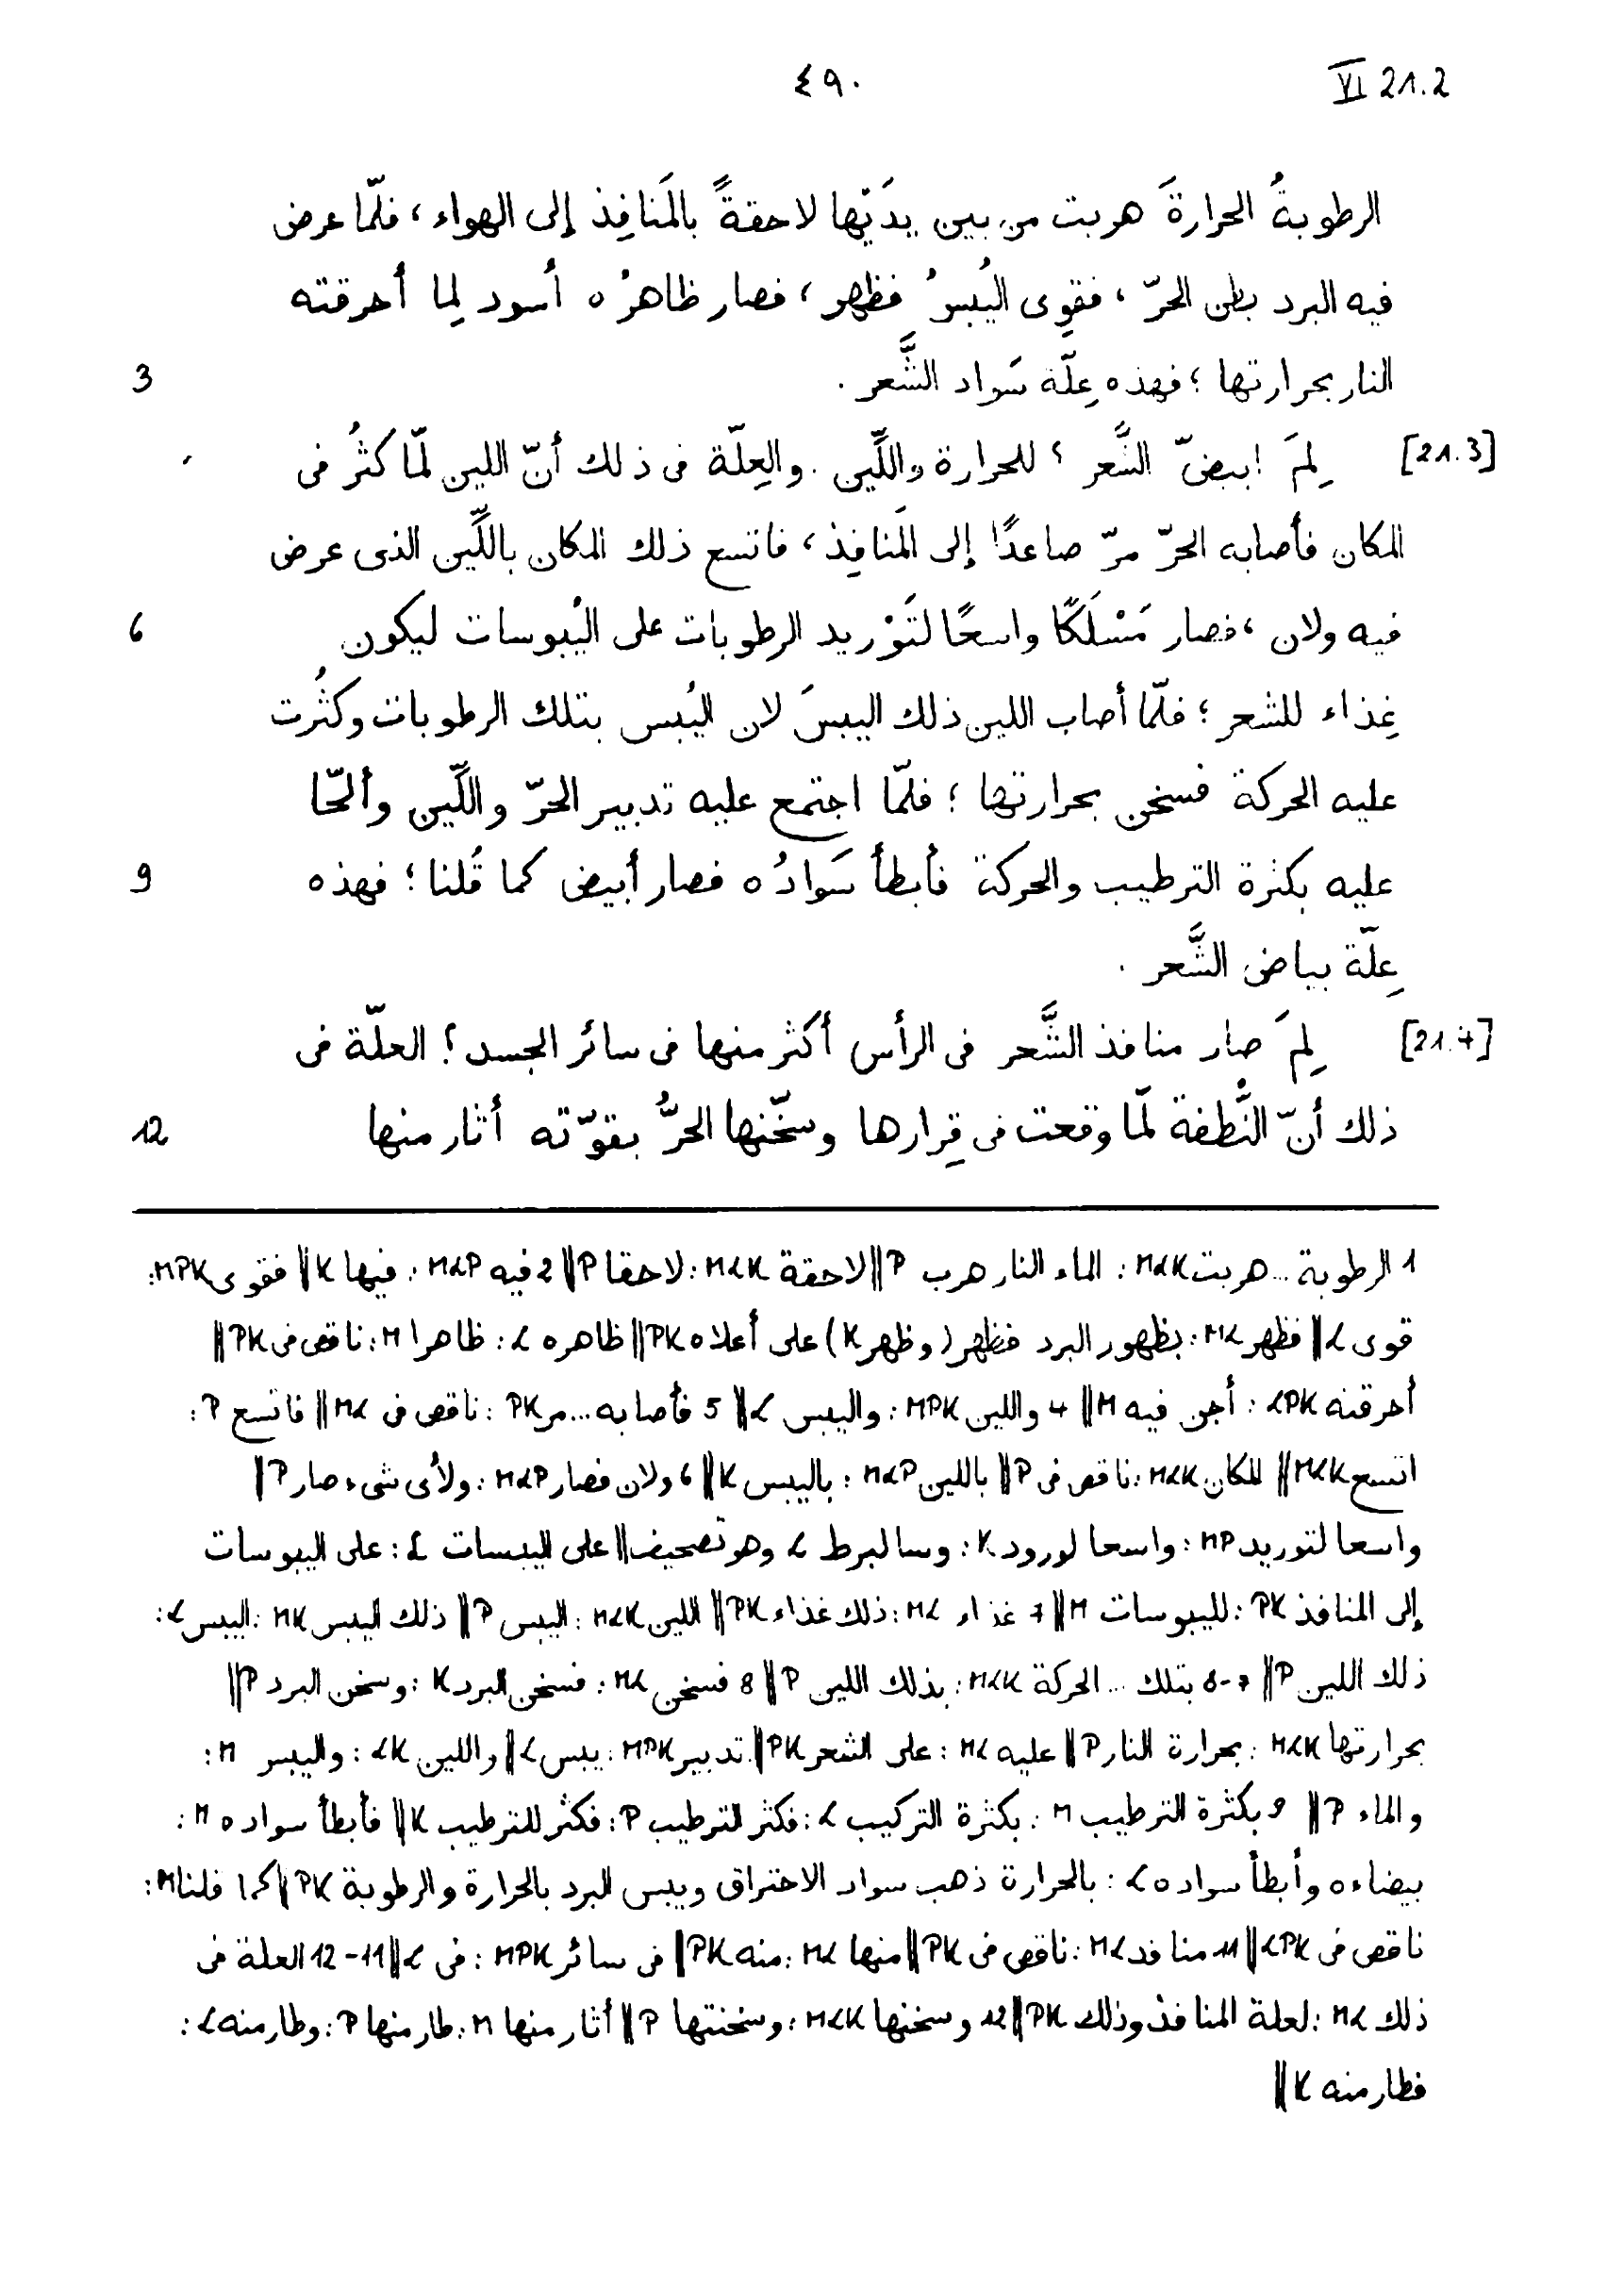 ٤٩٠ VI 21.2
الرطوبةُ الحرارةَ هربت من بين يدَيْها لاحقةً بالمَنافِذ إلى الهواء ، فلمّا عرض
فيه البرد بطن الحرّ ، فقوِى اليُبسُ فظهر ، فصار ظاهرُه أسود لِما أحرقته
النار بحرارتها ؛ فهذه عِلّة سَواد الشَّعر . 3
[21.3] لِمَ ابيضّ الشَّعر ؟ للحرارة واللِّين . والعِلّة فى ذلك أنّ اللين لمّا كثُر فى
المكان فأصابه الحرّ مرّ صاعدًا إلى المَنافِذ ، فاتسع ذلك المكان باللِّين الذى عرض
فيه ولان ، فصار مَسْلَكًا واسعًا لتَوْريد الرطوبات على اليُبوسات ليكون 6
غِذاء للشعر ؛ فلمّا أصاب اللين ذلك اليبسَ لان اليُبس بتلك الرطوبات وكثُرت
عليه الحركة فسخن بحرارتها ؛ فلمّا اجتمع عليه تدبير الحرّ واللِّين وألحّا
عليه بكثرة الترطيب والحركة فأبطأ سَوادُه فصار أبيض كما قُلنا ؛ فهذه 9
عِلّة بياض الشَّعر .
[21.4] لِمَ صار منافذ الشَّعر فى الرأس أكثر منها فى سائر الجسد ؟ العلّة فى
ذلك أنّ النُّطفة لمّا وقعت فى قِرارها وسخّنها الحرُّ بقوّته أثار منها 12
1 الرطوبة ... هربت MLK : الماء النار هرب P || لاحقة MLK : لاحقا P || 2 فيه MLP : فيها K || فقوى MPK :
قوى L || فظهر ML : بظهور البرد فظهر (وظهر K) على أعلاه PK || ظاهره L : ظاهرا M : ناقص فى PK ||
أحرقته LPK : أجن فيه M || 4 واللين MPK : واليبس L || 5 فأصابه ... مر PK : ناقص فى ML || فاتسع P :
اتسع MLK || المكان MLK : ناقص فى P || باللين MLP : باليبس K || 6 ولان فصار MLP : ولأى شىء صار P ||
واسعا لتوريد MP : واسعا لورود K : وسا لبرط L وهو تصحيف || على اليبسات L : على اليبوسات
إلى المنافذ PK : لليبوسات M || 7 غذاء ML : ذلك غذاء PK || اللين MLK : اليبس P || ذلك اليبس MK : اليبس L :
ذلك اللين P || 7-8 بتلك ... الحركة MLK : بذلك اللين P || 8 فسخن ML : فسخن البرد K : وسخن البرد P ||
بحرارتها MLK : بحرارة النار P || عليه ML : على الشعر PK || تدبير MPK : يبس L || واللين LK : واليبس M :
والماء P || 9 بكثرة الترطيب M : بكثرة التركيب L : فكثر الترطيب P : فكثر للترطيب K || فأبطأ سواده M :
بيضاءه وأبطأ سواده L : بالحرارة ذهب سواد الاحتراق ويبس البرد بالحرارة والرطوبة PK || كما قلنا M :
ناقص فى LPK || 11 منافد ML : ناقص فى PK || منها ML : منه PK || فى سائر MPK : فى L || 11-12 العلة فى
ذلك ML : لعلة المنافذ وذلك PK || 12 وسخنها MLK : وسخنتها P || أثار منها M : طار منها P : وطار منه L :
فطار منه K ||